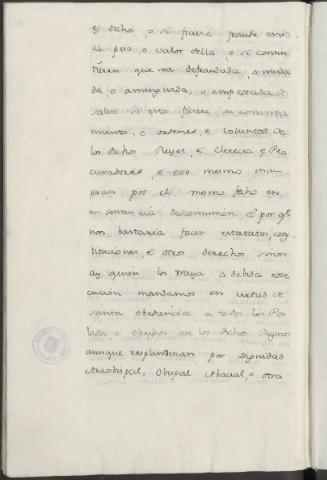 es dicho, o si fuere fraude en
el peso, o valor della, o si consin
tieren que sea defraudada, o muda
da, o amenguada, o empeorada
salvo si esto fuere de consenti
miento, e ordenes, e voluntad de
los dichos Reyes, e Clerecia e Pro
curadores, e eso mesmo incu
rran por el mesmo fecho en
sentencia descomunion. E por qe
non bastaria facer estatutos, cons
tituciones, e otros derechos, si non
ay quien los traya a debida exe
cucion mandamos en virtud de
santa obediencia a todos los Per
lados, e Obispos en los dichos Regnos
aunque resplandezcan por Dignidad
Arzobispal, Obispal Abacial, o otra